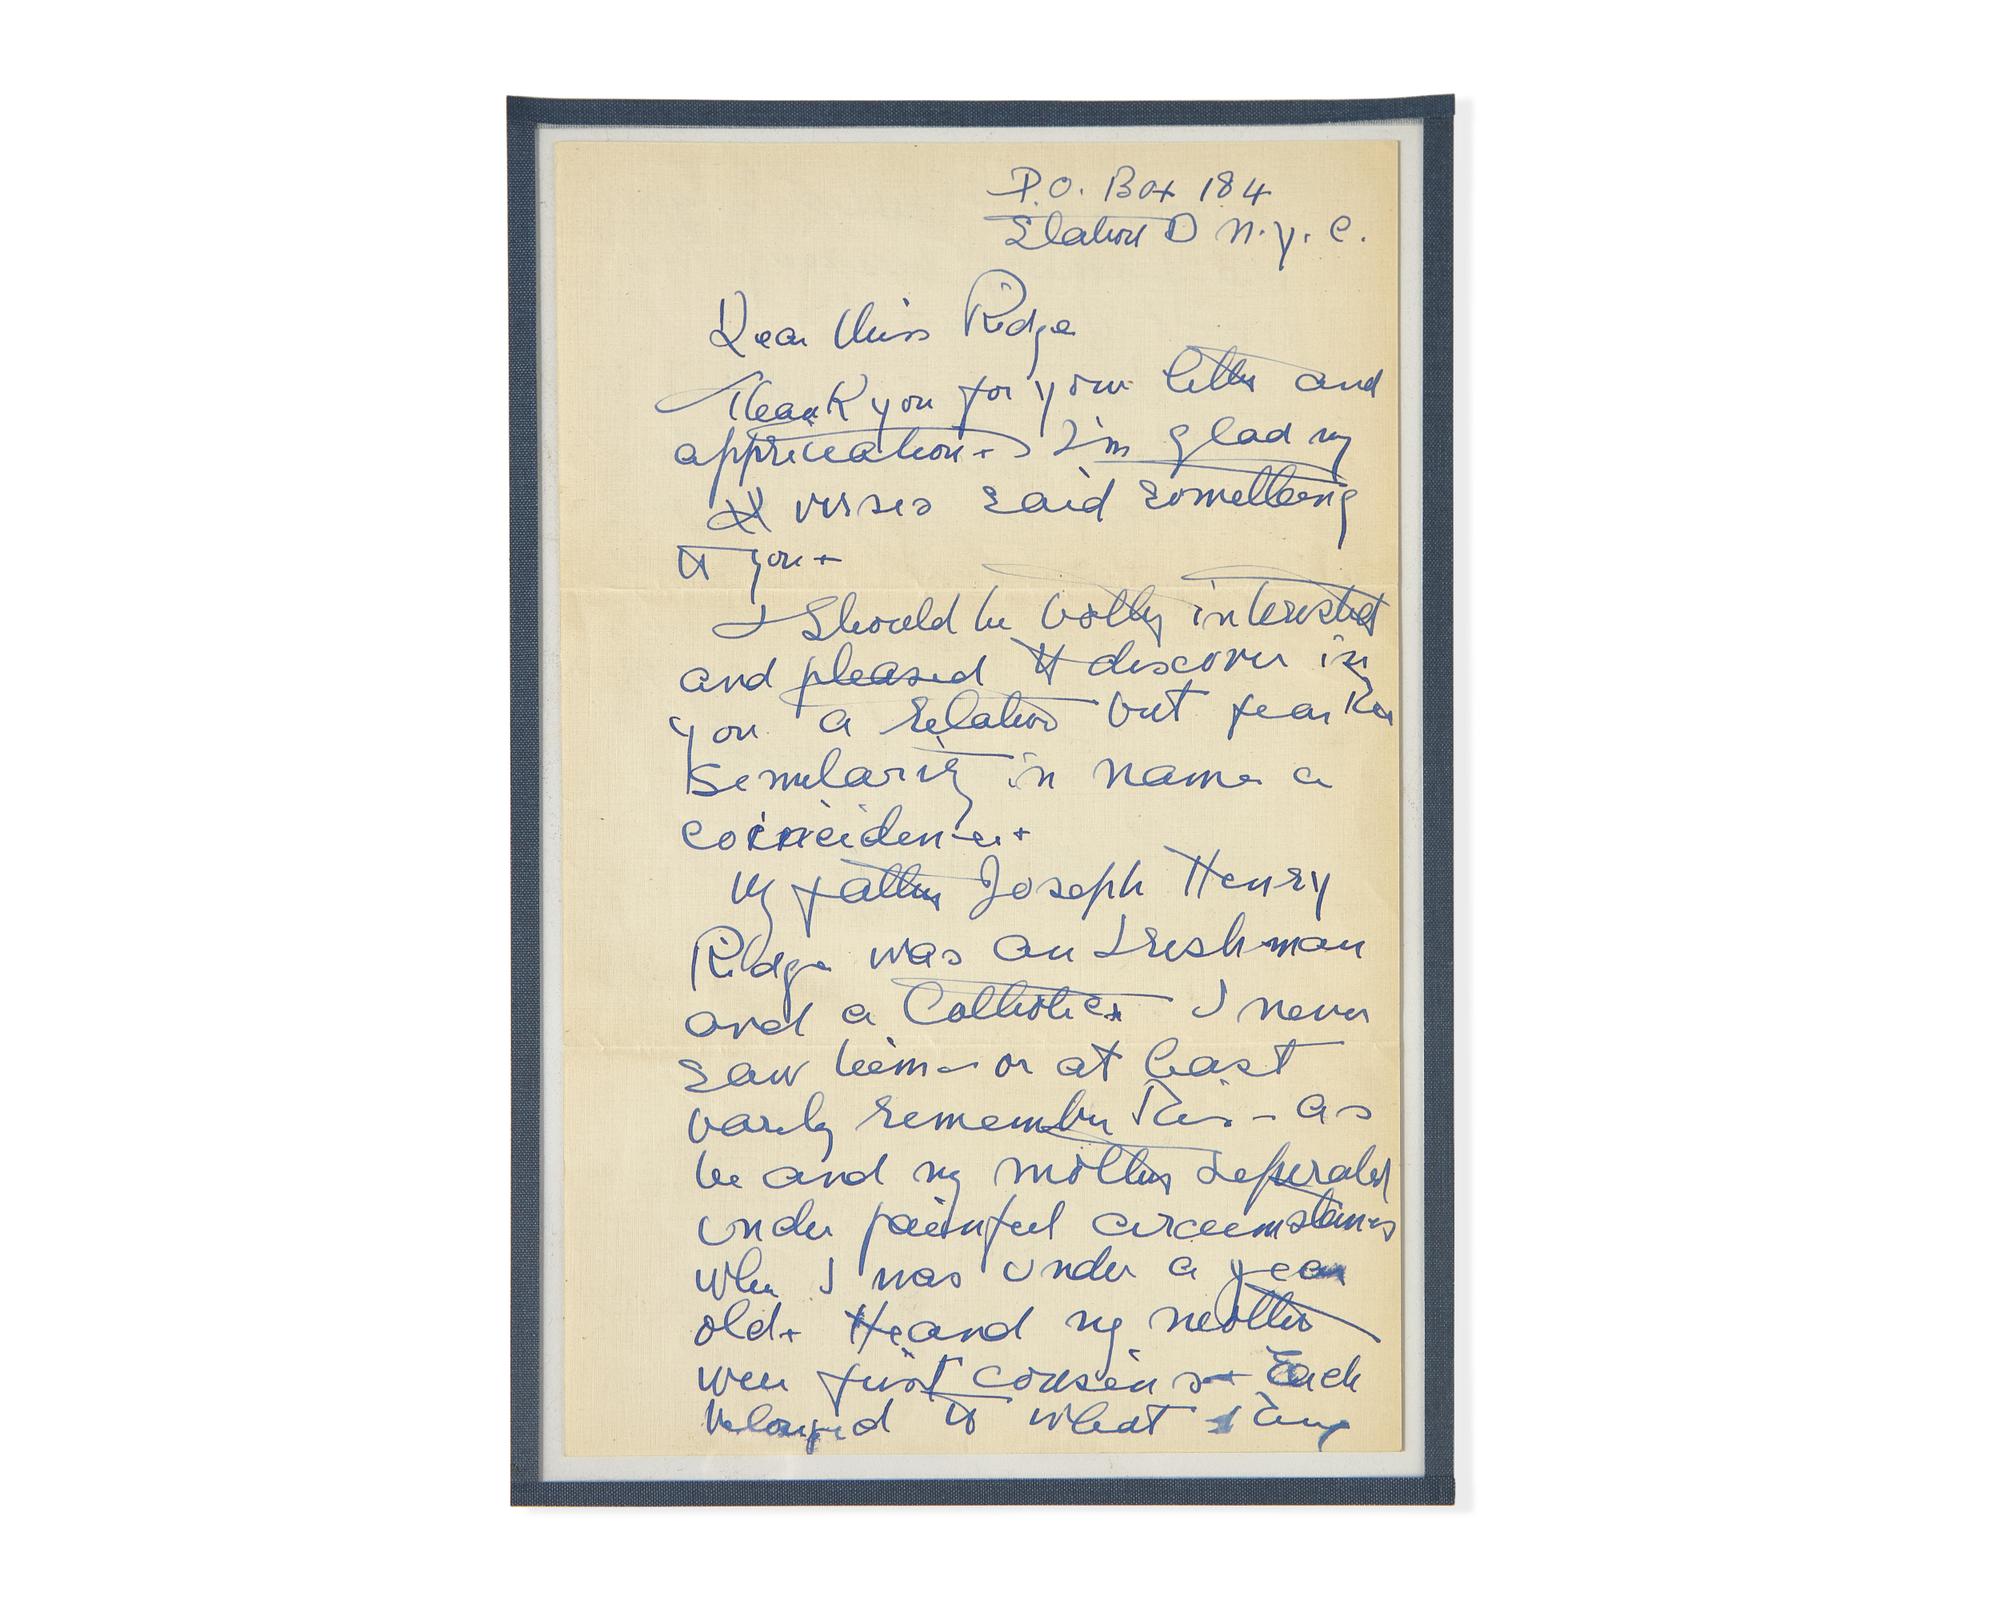 P.O. Box 184
Station D N.Y.C.
Dear Miss Ridge
Thank you for your letter and
appriciation. I'm glad my
verses said something
to you.
I should be bothy interested
and pleased to discover in
you a relation but fear the
similarity in name a
coincidence.
My father Joseph Henry
Ridge was an Irishman
and a Catholic. I never
saw him — or at least
barely remember this — as
he and my mother seperated
under painful circumstances
when I was under a year
old. He and my mother
were first cousins. Each
belonged to what they